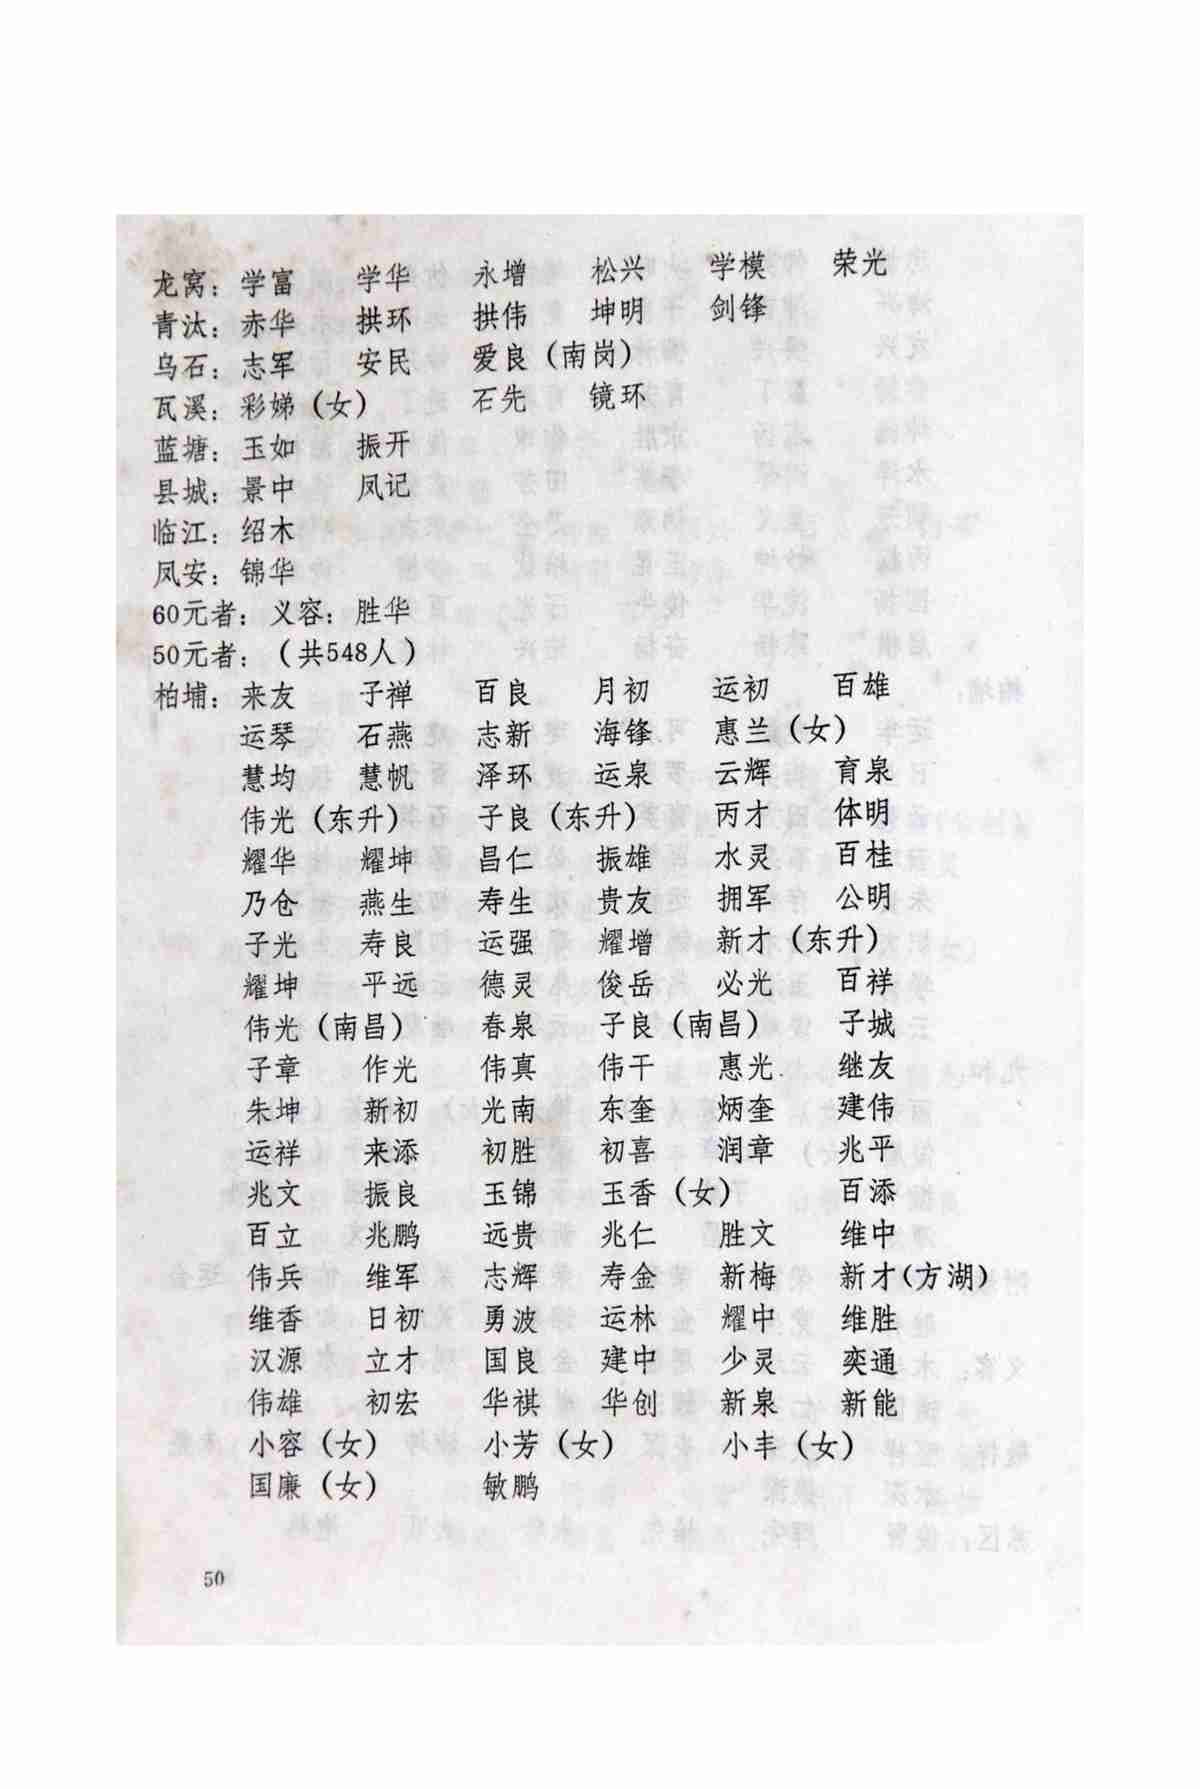 龙窝：学富 学华 永增 松兴 学模 荣光
青汰：赤华 拱环 拱伟 坤明 剑锋
乌石：志军 安民 爱良（南岗）
瓦溪：彩娣（女） 石先 镜环
蓝塘：玉如 振开
县城：景中 凤记
临江：绍木
凤安：锦华
60元者：义容：胜华
50元者：（共548人）
柏埔：来友 子禅 百良 月初 运初 百雄
运琴 石燕 志新 海锋 惠兰（女）
慧均 慧帆 泽环 运泉 云辉 育泉
伟光（东升） 子良（东升） 丙才 体明
耀华 耀坤 昌仁 振雄 水灵 百桂
乃仓 燕生 寿生 贵友 拥军 公明
子光 寿良 运强 耀增 新才（东升）
耀坤 平远 德灵 俊岳 必光 百祥
伟光（南昌） 春泉 子良（南昌） 子城
子章 作光 伟真 伟干 惠光 继友
朱坤 新初 光南 东奎 炳奎 建伟
运祥 来添 初胜 初喜 润章 兆平
兆文 振良 玉锦 玉香（女） 百添
百立 兆鹏 远贵 兆仁 胜文 维中
伟兵 维军 志辉 寿金 新梅 新才(方湖)
维香 日初 勇波 运林 耀中 维胜
汉源 立才 国良 建中 少灵 奕通
伟雄 初宏 华祺 华创 新泉 新能
小容（女） 小芳（女） 小丰（女）
国廉（女） 敏鹏
50